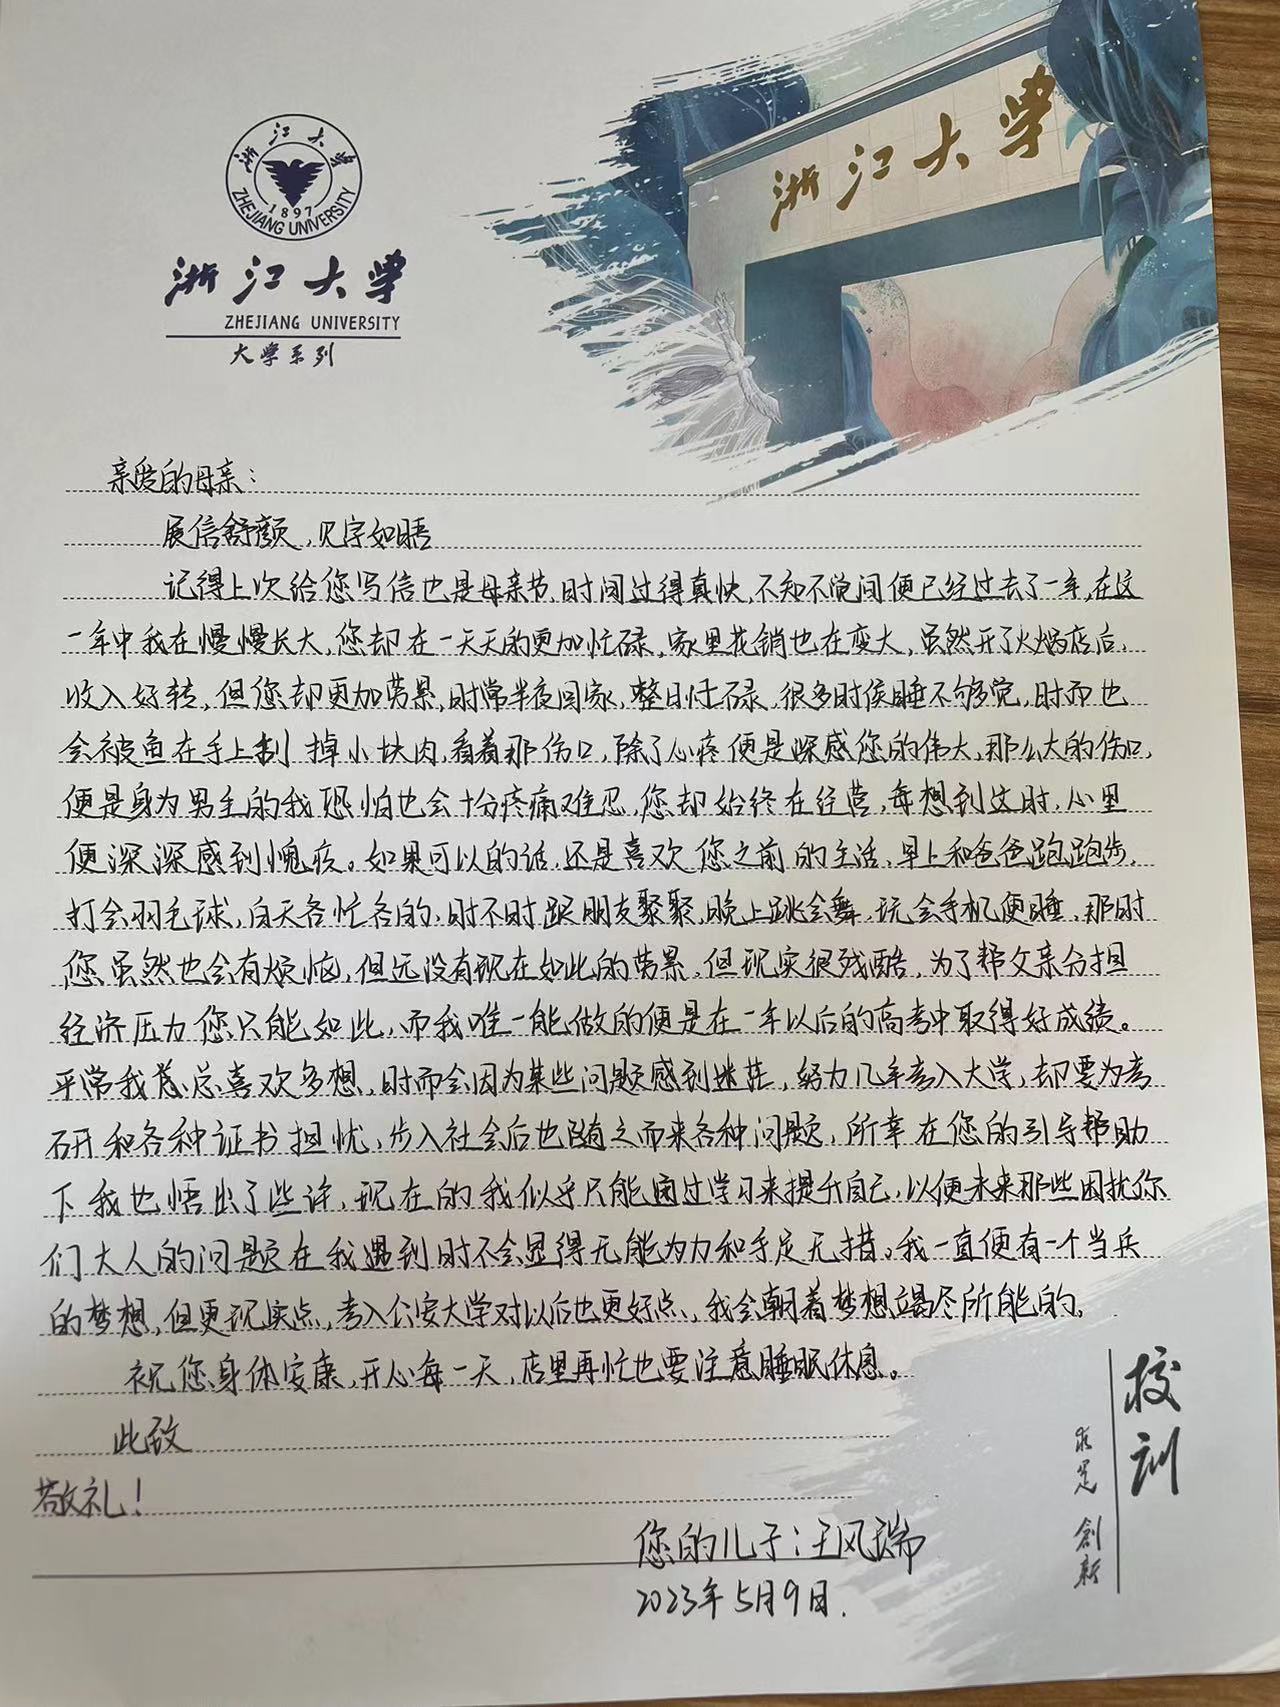 浙江大学
ZHEJIANG UNIVERSITY
1897
浙江大学
浙江大学
ZHEJIANG UNIVERSITY
大学系列
亲爱的母亲：
展信舒颜，见字如晤
记得上次给您写信也是母亲节，时间过得真快，不知不觉间便已经过去了一年，在这
一年中我在慢慢长大，您却在一天天的更加忙碌，家里花销也在变大，虽然开了火锅店后，
收入好转，但您却更加劳累，时常半夜回家，整日忙碌，很多时侯睡不够觉，时而也
会被鱼在手上割掉小块肉，看着那伤口，除了心疼便是深感您的伟大，那么大的伤口，
便是身为男生的我恐怕也会十分疼痛难忍，您却始终在经营，每想到这时，心里
便深深感到愧疚。如果可以的话，还是喜欢您之前的生活，早上和爸爸跑跑步，
打会羽毛球，白天各忙各的，时不时跟朋友聚聚，晚上跳会舞，玩会手机便睡，那时
您虽然也会有烦恼，但远没有现在如此的劳累，但现实很残酷，为了帮父亲分担
经济压力您只能如此，而我唯一能做的便是在一年以后的高考中取得好成绩。
平常我总喜欢多想，时而会因为某些问题感到迷茫，努力几年考入大学，却要为考
研和各种证书担忧，步入社会后也随之而来各种问题，所幸在您的引导帮助
下我也悟出了些许，现在的我似乎只能通过学习来提升自己，以便未来那些困扰你
们大人的问题在我遇到时不会显得无能为力和手足无措。我一直便有一个当兵
的梦想，但更现实点，考入公安大学对以后也更好点，我会朝着梦想竭尽所能的。
祝您身体安康，开心每一天，店里再忙也要注意睡眠休息。
此致
敬礼！
您的儿子：王风瑞
2023年5月9日.
校训
求是 創新